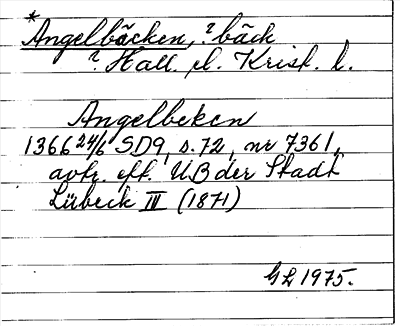 *Angelbäcken, ? bäck
? Hall. el. Krist. l.
Angelbeken
1366 24/6 SD9, s. 72, nr 7361,
avtr. eft. UB der Stadt
Lübeck IV (1871)
GL 1975.